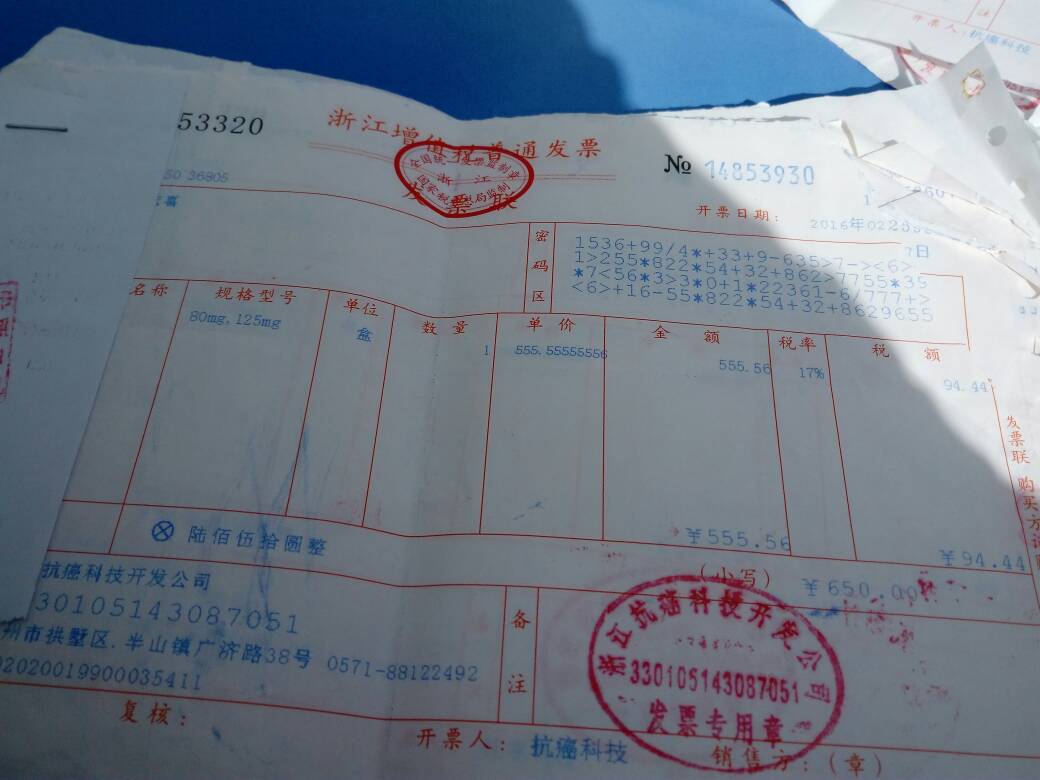 开票人：抗癌科技
53320
浙江增值税普通发票
全国统一发票监制章
浙江
国家税务总局监制
发票联
№ 14853930
50 36805
喜
开票日期：
2016年02
7日
密码区
1536+99/4*+33+9-635>7-><6>
1>255*822*54+32+862>7755*39
*7<56*3>3*0+1*22361-6/777+>
<6>+16-55*822*54+32+8629655
名称 规格型号 单位 数量 单价 金额 税率 税额
80mg,125mg 盒 1 555.55555556 555.56 17% 94.44
￥555.56 ￥94.44
⊗ 陆佰伍拾圆整 （小写） ￥650.00
发票联 购买方
抗癌科技开发公司
30105143087051
州市拱墅区.半山镇广济路38号 0571-88122492
02020019900035411
备注
浙江抗癌科技开发公司
330105143087051
发票专用章
复核：
开票人：抗癌科技
销售方：（章）